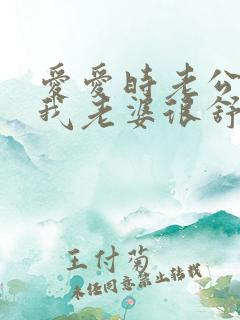 爱爱时老公
我老婆很舒
王付菊
未经同意禁止转载